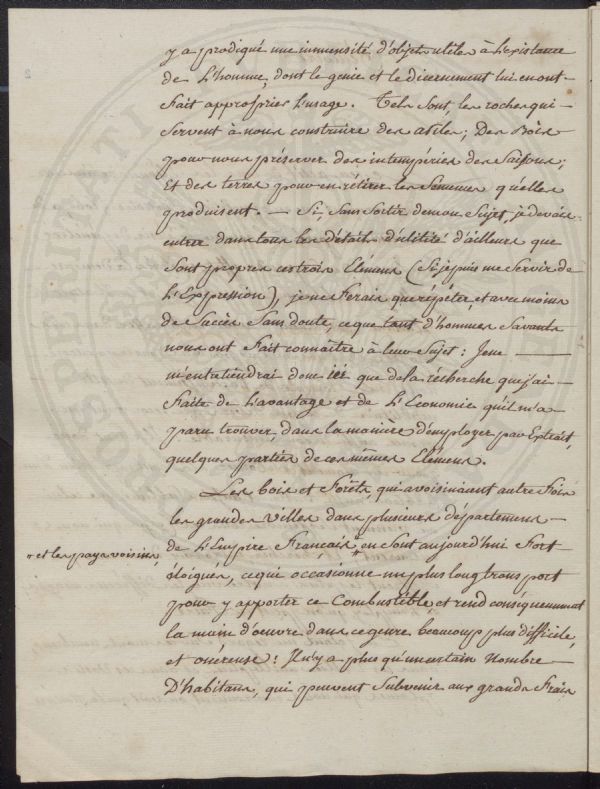 y a prodigué une immensité d'objets utiles à l'existance
de l'homme, dont le genie et le dicernement lui en ont
fait approprier l'usage. Tels sont, les roches qui
servent à nous construire des asiles; Des Bois
pour nous préserver des intempéries des Saisons;
Et des terres pour en rétirer les Semences qu'elles
produisent. — Si, Sans Sortir de mon Sujet, je devais
entrer dans tous les détails d'utilité d'ailleurs que
Sont propres ces trois Elémens (Si je puis me Servir de
l'Expression), je ne ferais que répéter, et avec moins
de Succès Sans doute, ce que tant d'hommes Savants
nous ont Fait connaître à leur Sujet: Je ne
m'entretiendrai donc ici que de la récherche que j'ai
Faite de l'avantage et de l'Economie qu'il m'a
paru trouver, dans la manière d'employer par Extrait,
quelques parties de ces mêmes Elémens.
Les bois et Forêts, qui avoisinaient autre Fois
les grandes Villes dans plusieurs départemens
de l'Empire Français, en Sont aujourd'hui Fort
et les pays voisins,
éloignés, ce qui occasionne un plus long transport
pour y apporter ce Combustible, et rend conséquemment
la main d'oeuvre dans ce genre beaucoup plus difficile,
et onéreuse: Il n'y a plus qu'un certain Nombre
D'habitans, qui peuvent Subvenir aux grands Frais